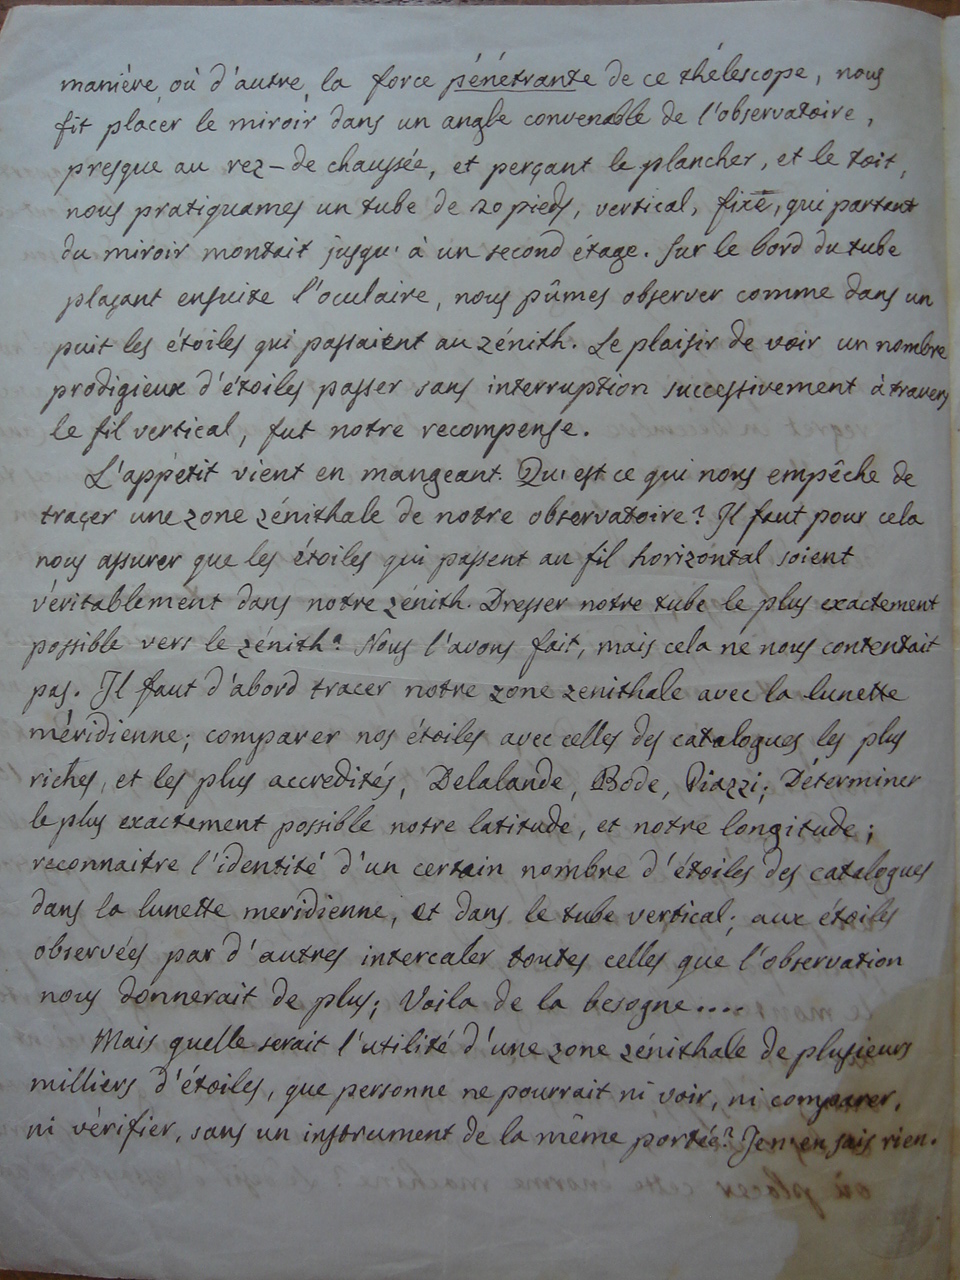 manière, où d'autre, la force pénétrante de ce thélescope, nous
fit placer le miroir dans un angle convenable de l'observatoire,
presque au rez-de chaussée, et perçant le plancher, et le toit,
nous pratiquames un tube de 20 pieds, vertical, fixe, qui partant
du miroir montait jusqu' à un second étage. Sur le bord du tube
plaçant ensuite l'oculaire, nous pûmes observer comme dans un
puit les étoiles qui passaient au zénith. Le plaisir de voir un nombre
prodigieux d'étoiles passer sans interruption successivement à travers
le fil vertical, fut notre recompense.
L'appétit vient en mangeant. Qu'est ce qui nous empêche de
traçer une zone zénithale de notre observatoire? Il faut pour cela
nous assurer que les étoiles qui passent au fil horizontal soient
véritablement dans notre zénith. Dresser notre tube le plus exactement
possible vers le zénith? Nous l'avons fait, mais cela ne nous contentait
pas. Il faut d'abord tracer notre zone zenithale avec la lunette
méridienne; comparer nos étoiles avec celles des catalogues les plus
riches, et les plus accredités, Delalande, Bode, Piazzi; Déterminer
le plus exactement possible notre latitude, et notre longitude;
reconnaitre l'identité d'un certain nombre d'étoiles des catalogues
dans la lunette meridienne, et dans le tube vertical; aux étoiles
observées par d'autres intercaler toutes celles que l'observation
nous donnerait de plus; Voila de la besogne....
Mais quelle serait l'utilité d'une zone zénithale de plusieurs
milliers d'étoiles, que personne ne pourrait ni voir, ni comparer,
ni vérifier, sans un instrument de la même portée? Je n'en sais rien.